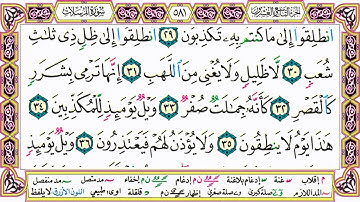 الجزء التاسع والعشرون ٥٨١ سورة المرسلات
انطَلِقُوا إِلَىٰ مَا كُنتُم بِهِ تُكَذِّبُونَ ٢٩ انطَلِقُوا إِلَىٰ ظِلٍّ ذِي ثَلَاثِ
شُعَبٍ ٣٠ لَّا ظَلِيلٍ وَلَا يُغْنِي مِنَ اللَّهَبِ ٣١ إِنَّهَا تَرْمِي بِشَرَرٍ
كَالْقَصْرِ ٣٢ كَأَنَّهُ جِمَالَتٌ صُفْرٌ ٣٣ وَيْلٌ يَوْمَئِذٍ لِّلْمُكَذِّبِينَ ٣٤
هَٰذَا يَوْمُ لَا يَنطِقُونَ ٣٥ وَلَا يُؤْذَنُ لَهُمْ فَيَعْتَذِرُونَ ٣٦ وَيْلٌ يَوْمَئِذٍ